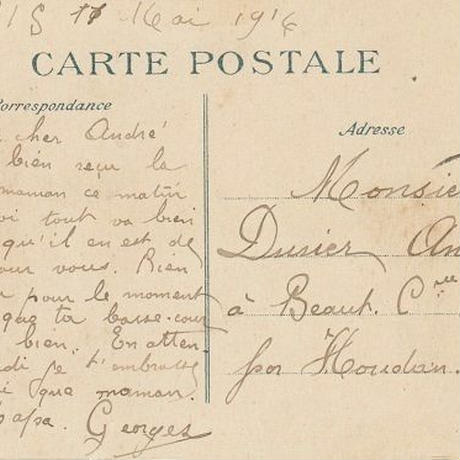 IS 17 Mai 1914
CARTE POSTALE
Correspondance
cher André
bien reçu la
maman ce matin
oi tout va bien
qu'il en est de
our vous. Rien
pour le moment
que ta basse-cour
bien. En atten
di je t'embrasse
i que maman.
papa. Georges
Adresse
Monsie
Dusier An
à Beaut. Cne
par Houdan.